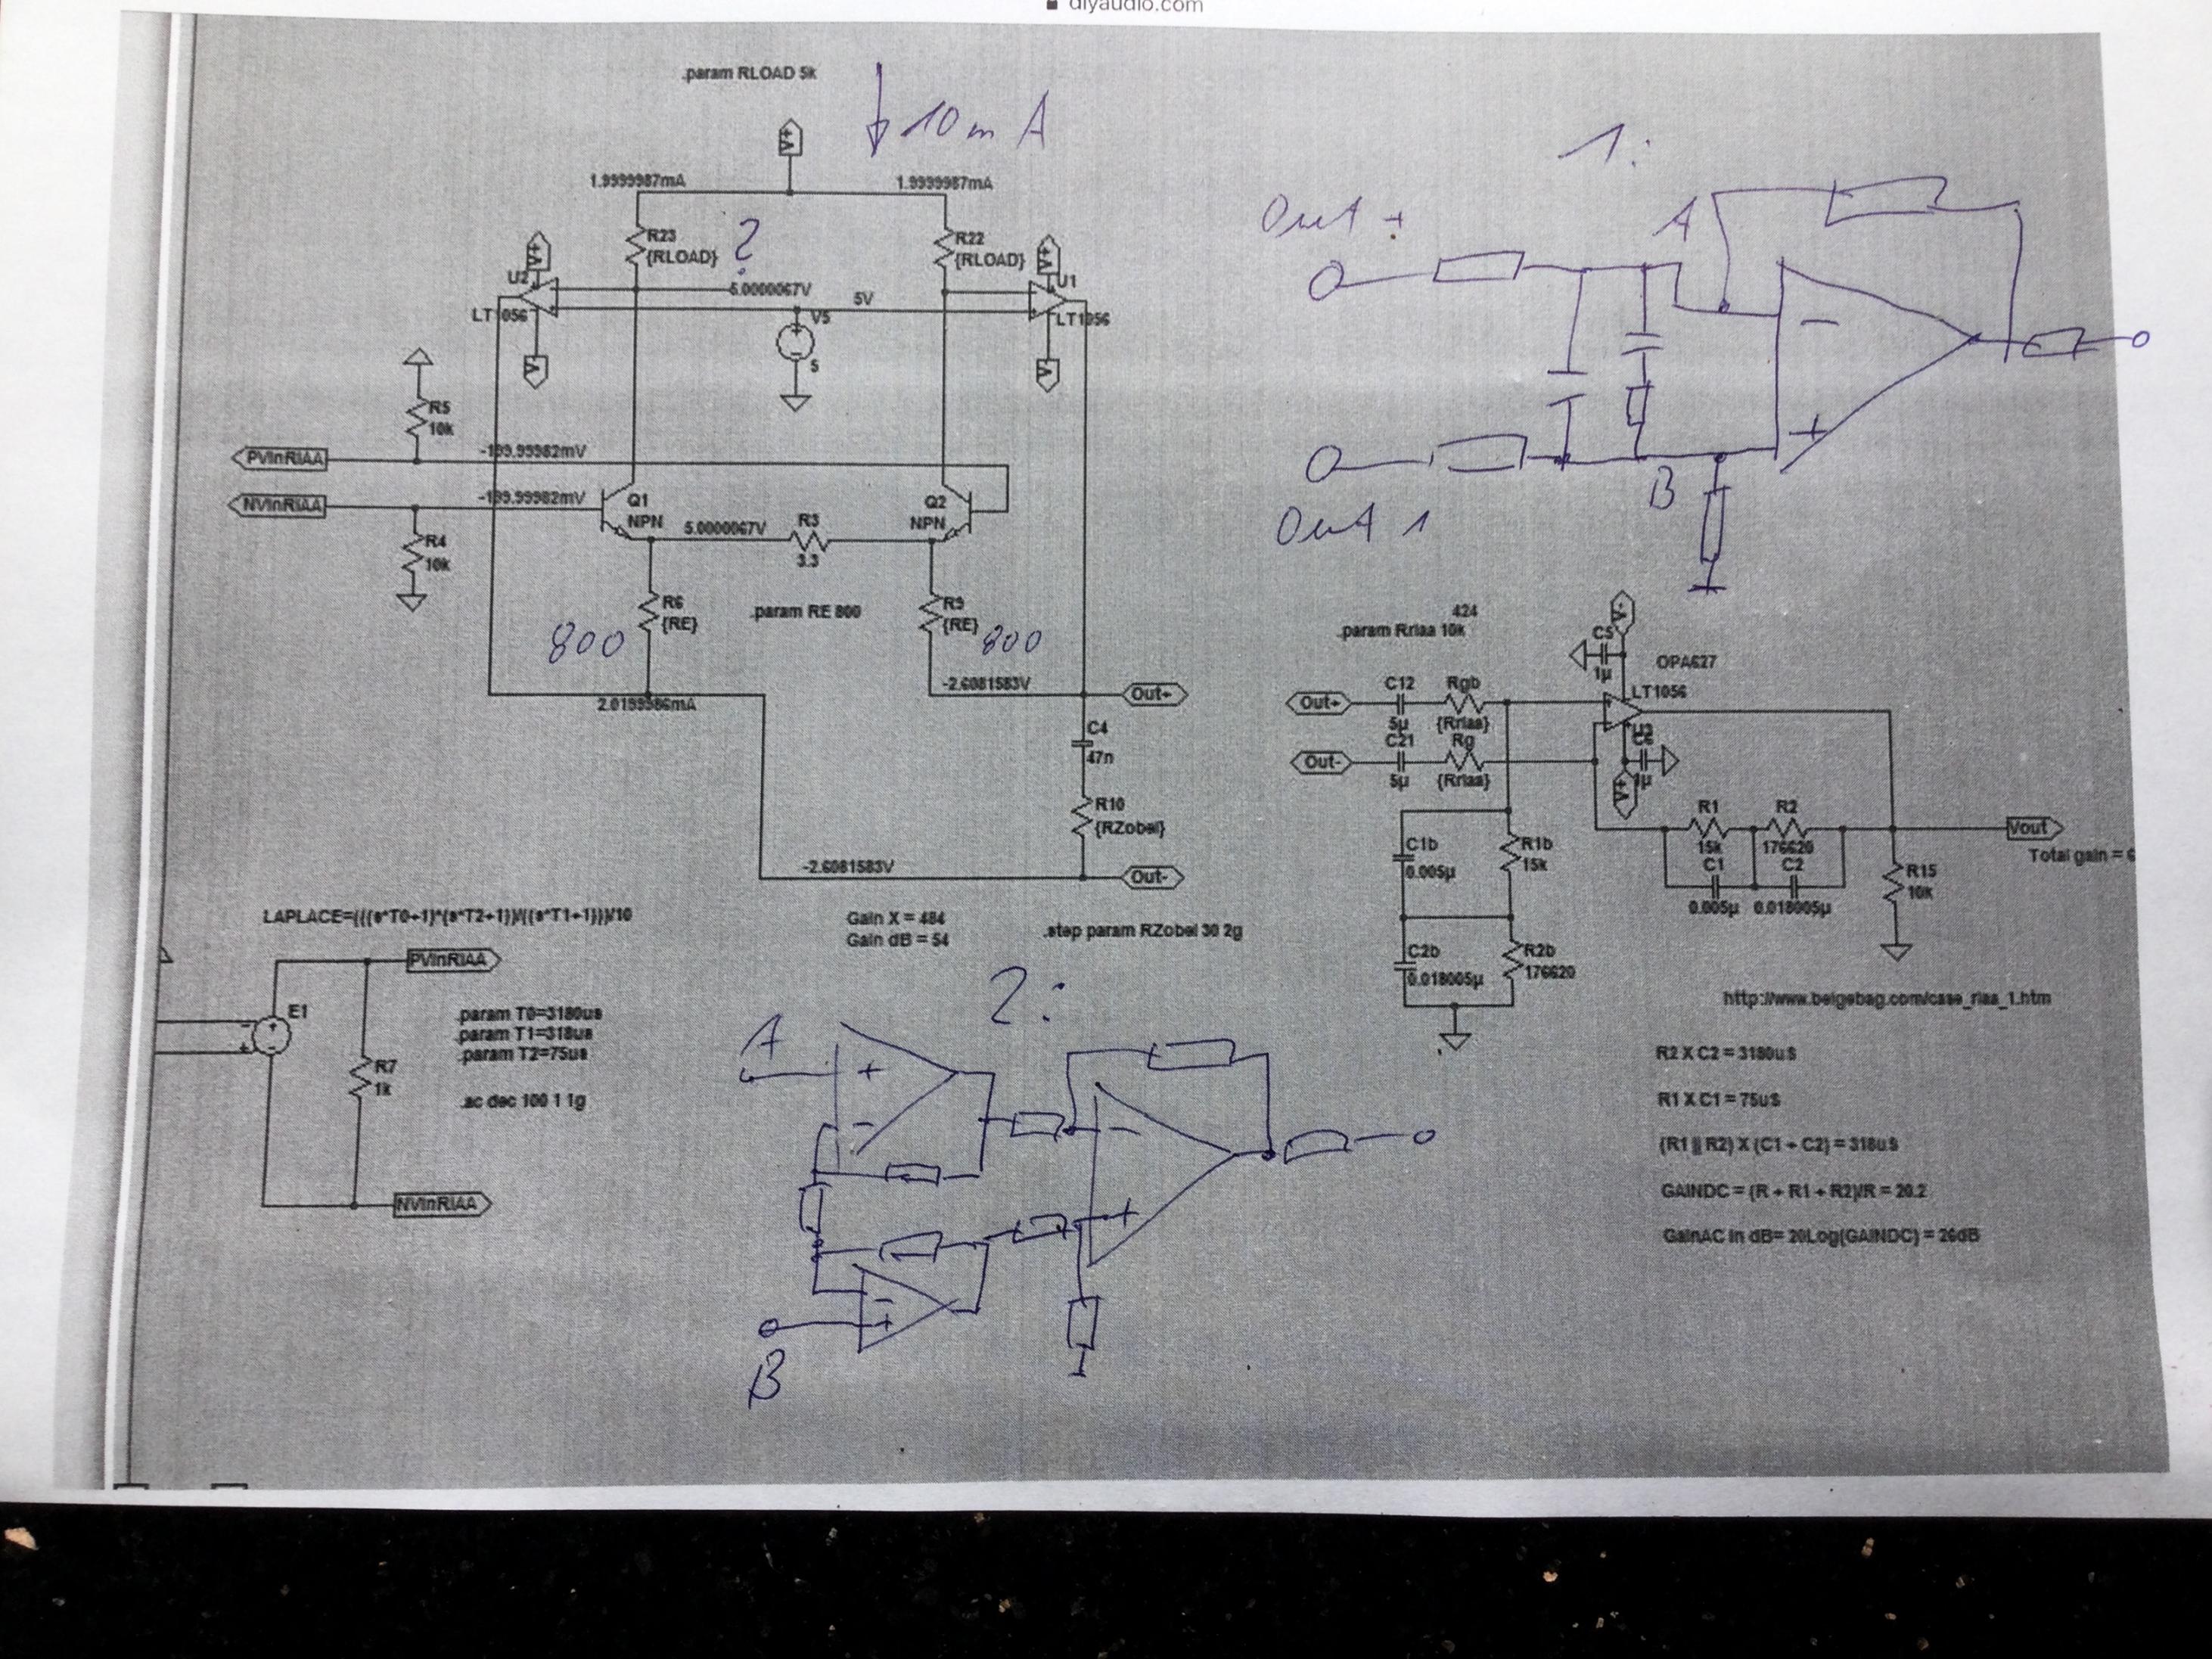 diyaudio.com
.param RLOAD 5k
10mA
V+
1.9999987mA
1.9999987mA
R23
{RLOAD}
?
R22
{RLOAD}
V+
V+
U2
U1
5.0000067V
5V
LT1056
LT1056
V5
5
V-
V-
R5
10k
PVInRIAA
-199.99982mV
NVInRIAA
-199.99982mV
Q1
NPN
Q2
NPN
5.0000067V
R3
3.3
R4
10k
R6
{RE}
.param RE 800
R9
{RE}
800
800
-2.6081583V
Out+
2.0199986mA
C4
47n
R10
{RZobel}
-2.6081583V
Out-
LAPLACE=(((s*T0+1)*(s*T2+1))/((s*T1+1)))/10
Gain X = 484
Gain dB = 54
.step param RZobel 30 2g
PVInRIAA
E1
.param T0=3180us
.param T1=318us
.param T2=75us
R7
1k
.ac dec 100 1 1g
NVInRIAA
1:
Out +
A
-
+
B
Out 1
424
.param Rriaa 10k
V+
C5
1µ
OPA627
LT1056
C12
Rgb
Out+
5µ
{Rriaa}
C21
Rg
Out-
5µ
{Rriaa}
U3
C6
1µ
R1
R2
15k
176620
C1
C2
0.005µ
0.018005µ
Vout
Total gain = 6
R15
10k
C1b
0.005µ
R1b
15k
C2b
0.018005µ
R2b
176620
http://www.beigebag.com/case_riaa_1.htm
R2 X C2 = 3180uS
R1 X C1 = 75uS
(R1 || R2) X (C1 + C2) = 318uS
GAINDC = (R + R1 + R2)/R = 20.2
GainAC in dB= 20Log(GAINDC) = 26dB
2:
A
+
-
-
+
-
+
B